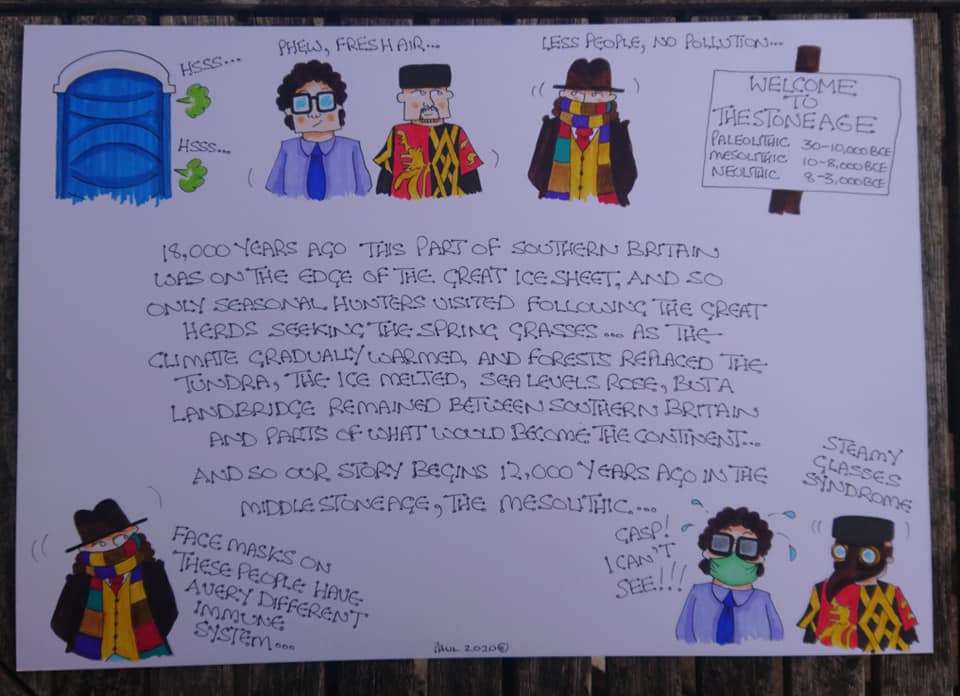 HSSS...
HSSS...
PHEW, FRESH AIR...
LESS PEOPLE, NO POLLUTION...
WELCOME
TO
THE STONE AGE
PALEOLITHIC 30-10,000 BCE
MESOLITHIC 10-8,000 BCE
NEOLITHIC 8-3,000 BCE
18,000 YEARS AGO THIS PART OF SOUTHERN BRITAIN
WAS ON THE EDGE OF THE GREAT ICE SHEET, AND SO
ONLY SEASONAL HUNTERS VISITED FOLLOWING THE GREAT
HERDS SEEKING THE SPRING GRASSES... AS THE
CLIMATE GRADUALLY WARMED, AND FORESTS REPLACED THE
TUNDRA, THE ICE MELTED, SEA LEVELS ROSE, BUT A
LANDBRIDGE REMAINED BETWEEN SOUTHERN BRITAIN
AND PARTS OF WHAT WOULD BECOME THE CONTINENT...
AND SO OUR STORY BEGINS 12,000 YEARS AGO IN THE
MIDDLE STONE AGE, THE MESOLITHIC...
FACE MASKS ON
THESE PEOPLE HAVE
A VERY DIFFERENT
IMMUNE
SYSTEM...
GASP!
I CAN'T
SEE!!!
STEAMY
GLASSES
SYNDROME
PAUL 2020©